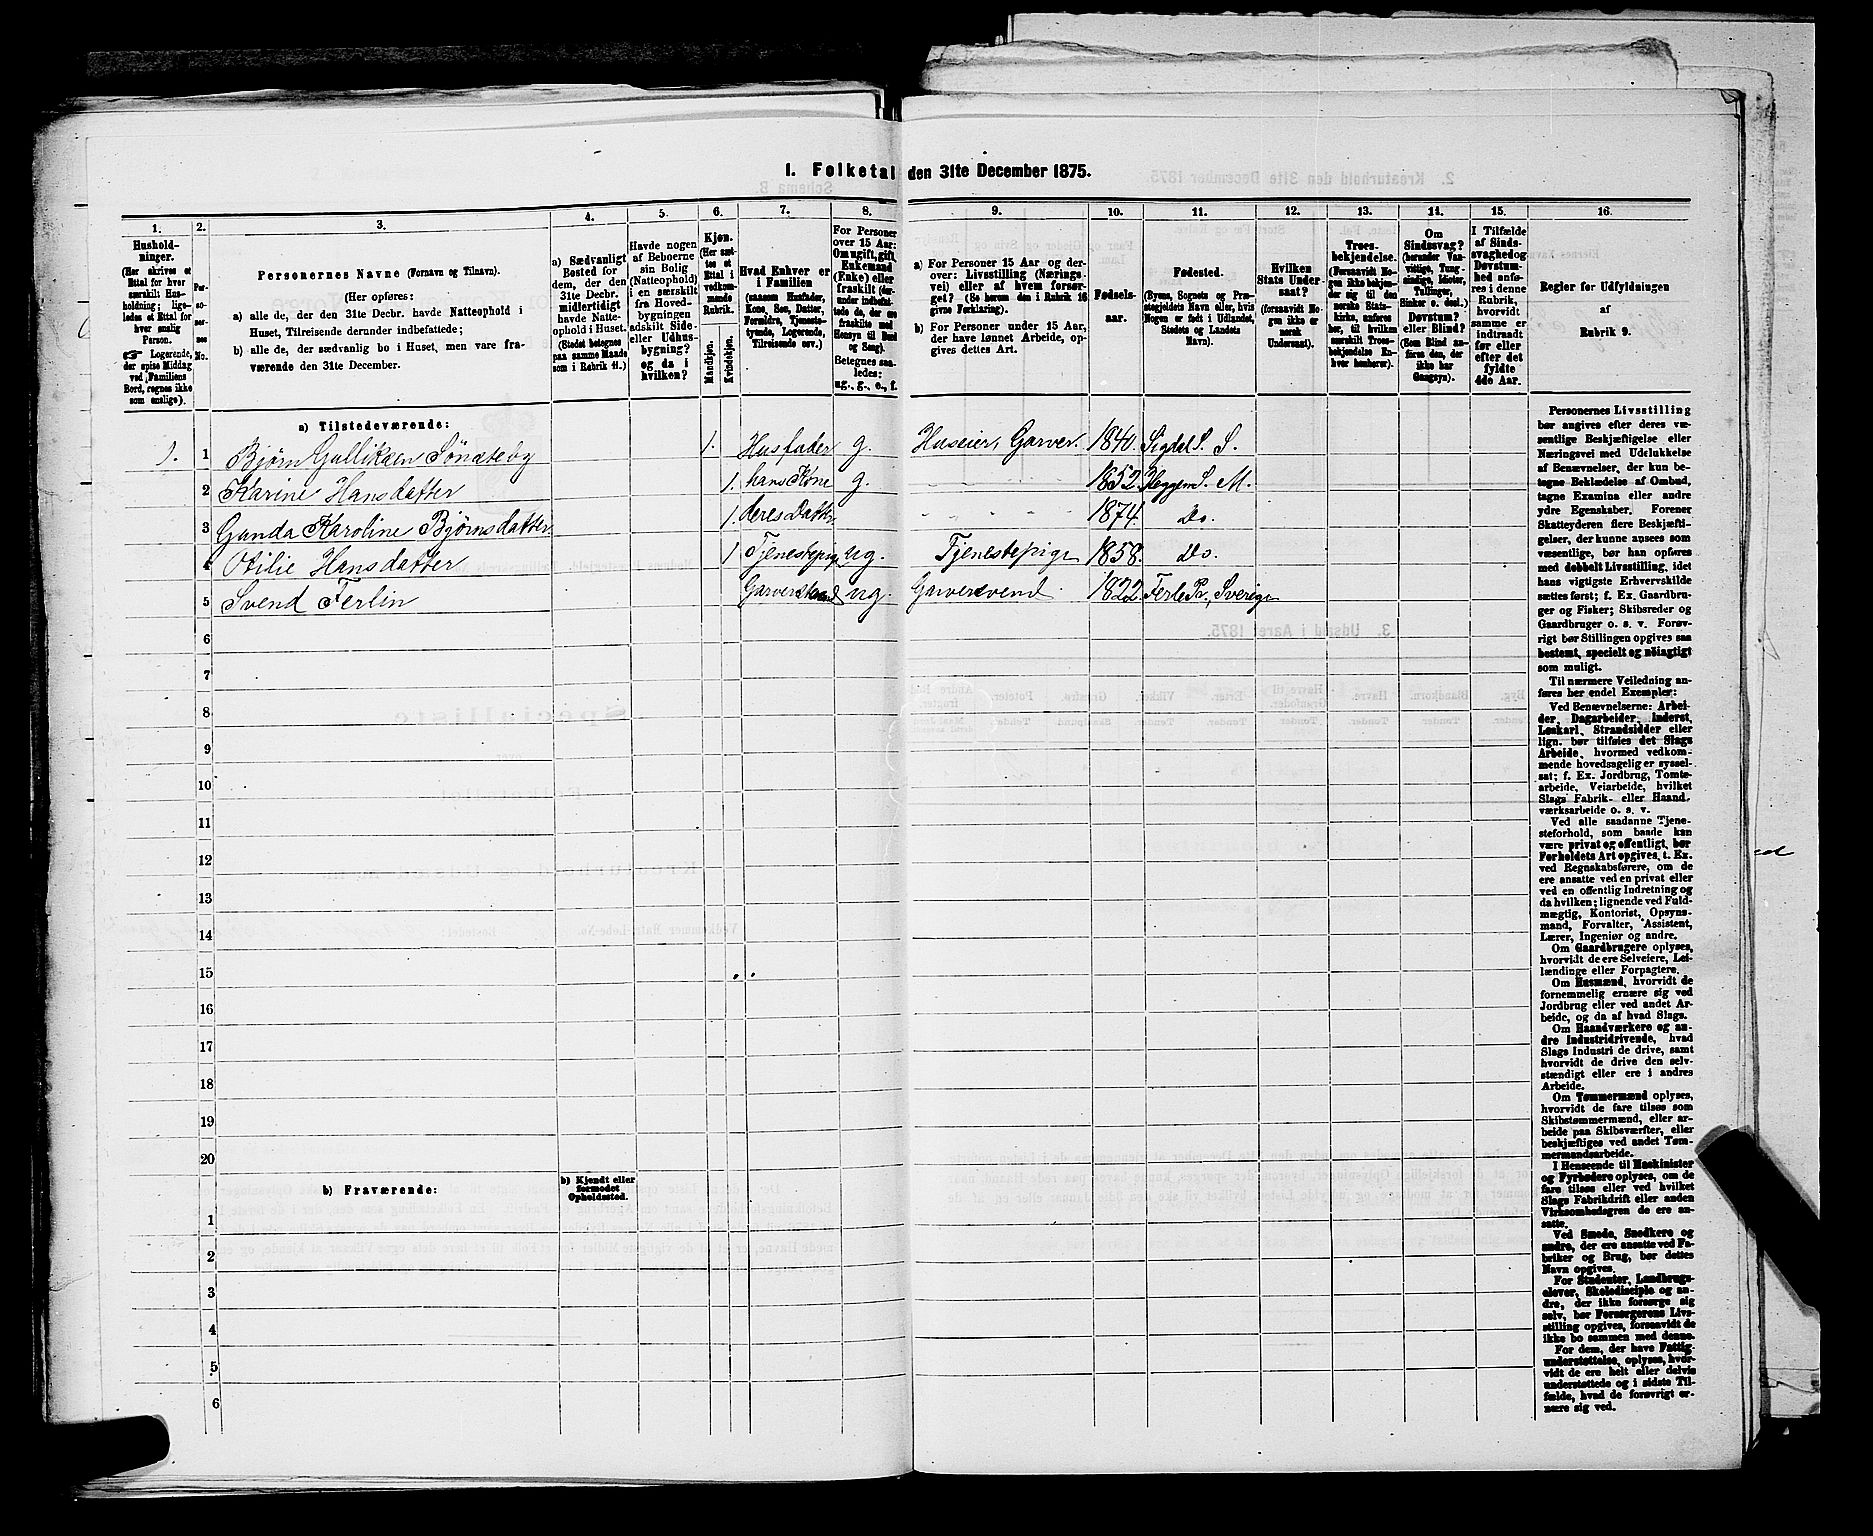 1. Folketal den 31te December 1875.
1. 2. 3. 4. 5. 6. 7. 8. 9. 10. 11. 12. 13. 14. 15. 16.
Hushold-
ninger.
(Her skrives et
Ettal for hver
særskilt Hus-
holdning; lige-
ledes et Ettal for
hver enslig
Person.
☞ Logerende,
der spise Middag
ved Familiens
Bord, regnes ikke
som enslige).
Per-
so-
ner-
nes
No.
Personernes Navne (Fornavn og Tilnavn).
(Her opføres:
a) alle de, der den 31te Decbr. havde Natteophold i
Huset, Tilreisende derunder indbefattede;
b) alle de, der sædvanlig bo i Huset, men vare fra-
værende den 31te December.
a) Sædvanligt
Bosted for
dem, der den
31te Decbr.
midlertidigt
havde Natte-
ophold i Huset.
(Stedet betegnes
paa samme Maade
som i Rubrik 11.)
Havde nogen
af Beboerne
sin Bolig
(Natteophold)
i en særskilt
fra Hoved-
bygningen
adskilt Side-
eller Udhus-
bygning?
og da i
hvilken?
Kjøn.
(Her sæt-
tes et
Ettal i
vedkom-
mende
Rubrik.
Mandkjøn.
Kvindekjøn.
Hvad Enhver er
i Familien
(saasom Husfader,
Kone, Søn, Datter,
Forældre, Tjeneste-
tyende, Logerende,
Tilreisende osv.)
For Personer
over 15 Aar:
Om ugift, gift,
Enkemand
(Enke) eller
fraskilt (der-
under indbefat-
tede de, der ere
fraskilte med
Hensyn til Bord
og Seng).
Betegnes saa-
ledes:
ug., g., e., f.
a) For Personer 15 Aar og der-
over: Livsstilling (Nærings-
vei) eller af hvem forsør-
get? (Se herom den i Rubrik 16
givne Forklaring).
b) For Personer under 15 Aar,
der have lønnet Arbeide, op-
gives dettes Art.
Fødsels-
aar.
Fødested.
(Byens, Sognets og Præ-
stegjeldets Navn eller, hvis
Nogen er født i Udlandet,
Stedets og Landets
Navn).
Hvilken
Stats Under-
saat?
(forsaavidt No-
gen ikke er
norsk
Undersaat).
Troes-
bekjendelse.
(Forsaavidt No-
gen ikke bekjen-
der sig til den
norske Stats-
kirke, anføres
her, til hvilken
særskilt Troes-
bekjendelse En-
hver henhører).
Om
Sindssvag?
(herunder Van-
vittige, Tung-
sindige, Idioter,
Tullinger,
Sinker o. desl.)
Døvstum?
eller Blind?
(Som Blind an-
føres den, der
ikke har
Gangsyn).
I Tilfælde
af Sinds-
svaghed og
Døvstum-
hed anfø-
res i denne
Rubrik,
hvorvidt
samme er
indtraadt
før eller
efter det
fyldte
4de Aar.
Regler for Udfyldningen
af
Rubrik 9.
a) Tilstedeværende:
1. 1 Bjørn Gulliksen Sønsteby 1. Husfader g. Huseier, Garver. 1840. Sigdal S. S.
2 Karine Hansdatter 1. hans Kone g. 1852. Heggen S. M.
3 Gunda Karoline Bjørnsdatter 1. deres Datter 1874. Do.
4 Otilie Hansdatter 1 Tjenestepige ug. Tjenestepige 1858. Do.
5 Svend Ferlin Garversvend ug. Garversvend 1822. Ferle Pr., Sverige
6
7
8
9
10
11
12
13
14
15
16
17
18
19
20
b) Fraværende:
b) Kjendt eller
formodet
Opholdssted.
1
2
3
4
5
6
Personernes Livsstilling
bør angives efter deres væ-
sentlige Beskjæftigelse eller
Næringsvei med Udelukkelse
af Benævnelser, der kun be-
tegne Beklædelse af Ombud,
tagne Examina eller andre
ydre Egenskaber. Forener
Skatteyderen flere Beskjæfti-
gelser, der kunne ansees som
væsentlige, bør han opføres
med dobbelt Livsstilling, idet
hans vigtigste Erhvervskilde
sættes først; f. Ex. Gaardbru-
ger og Fisker; Skibsreder og
Gaardbruger o. s. v. Forøv-
rigt bør Stillingen opgives saa
bestemt, specielt og nøiagtigt
som muligt.
Til nærmere Veiledning an-
føres her endel Exempler:
Ved Benævnelserne: Arbei-
der, Dagarbeider, Inderst,
Løskarl, Strandsidder eller
lign. bør tilføies det Slags
Arbeide, hvormed vedkom-
mende hovedsagelig er syssel-
sat; f. Ex. Jordbrug, Tomte-
arbeide, Veiarbeide, hvilket
Slags Fabrik- eller Haand-
værksarbeide o. s. v.
Ved alle saadanne Tjene-
steforhold, som baade kan
være privat og offentligt, bør
Forholdets Art opgives, t. Ex.
ved Regnskabsførere, om de
ere ansatte ved en privat eller
ved en offentlig Indretning og
da hvilken; lignende ved Fuld-
mægtig, Kontorist, Opsyns-
mand, Forvalter, Assistent,
Lærer, Ingeniør og andre.
Om Gaardbrugere oplyses,
hvorvidt de ere Selveiere, Lei-
lændinge eller Forpagtere.
Om Husmænd, hvorvidt de
fornemmelig ernære sig ved
Jordbrug eller ved andet Ar-
beide, og da af hvad Slags.
Om Haandværkere og an-
dre Industridrivende, hvad
Slags Industri de drive, samt
hvorvidt de drive den selv-
stændigt eller ere i andres
Arbeide.
Om Tømmermænd oplyses,
hvorvidt de fare tilsøs som
Skibstømmermænd, eller ar-
beide paa Skibsværfter, eller
beskjæftiges ved andet Tøm-
mermandsarbeide.
I Henseende til Maskinister
og Fyrbødere oplyses, om de
fare tilsøs eller ved hvilket
Slags Fabrikdrift eller anden
Virksomhedsgren de ere an-
satte.
Ved Smede, Snedkere og
andre, der ere ansatte ved Fa-
briker og Brug, bør dettes
Navn opgives.
For Studenter, Landbrugs-
elever, Skoledisciple og an-
dre, der ikke forsørge sig
selv, bør Forsørgerens Livs-
stilling opgives, forsaavidt de
ikke bo sammen med denne.
For dem, der have Fattig-
understøttelse, oplyses, hvor-
vidt de ere helt eller delvis
understøttede og i sidste Til-
fælde, hvad de forøvrigt er-
nære sig ved.